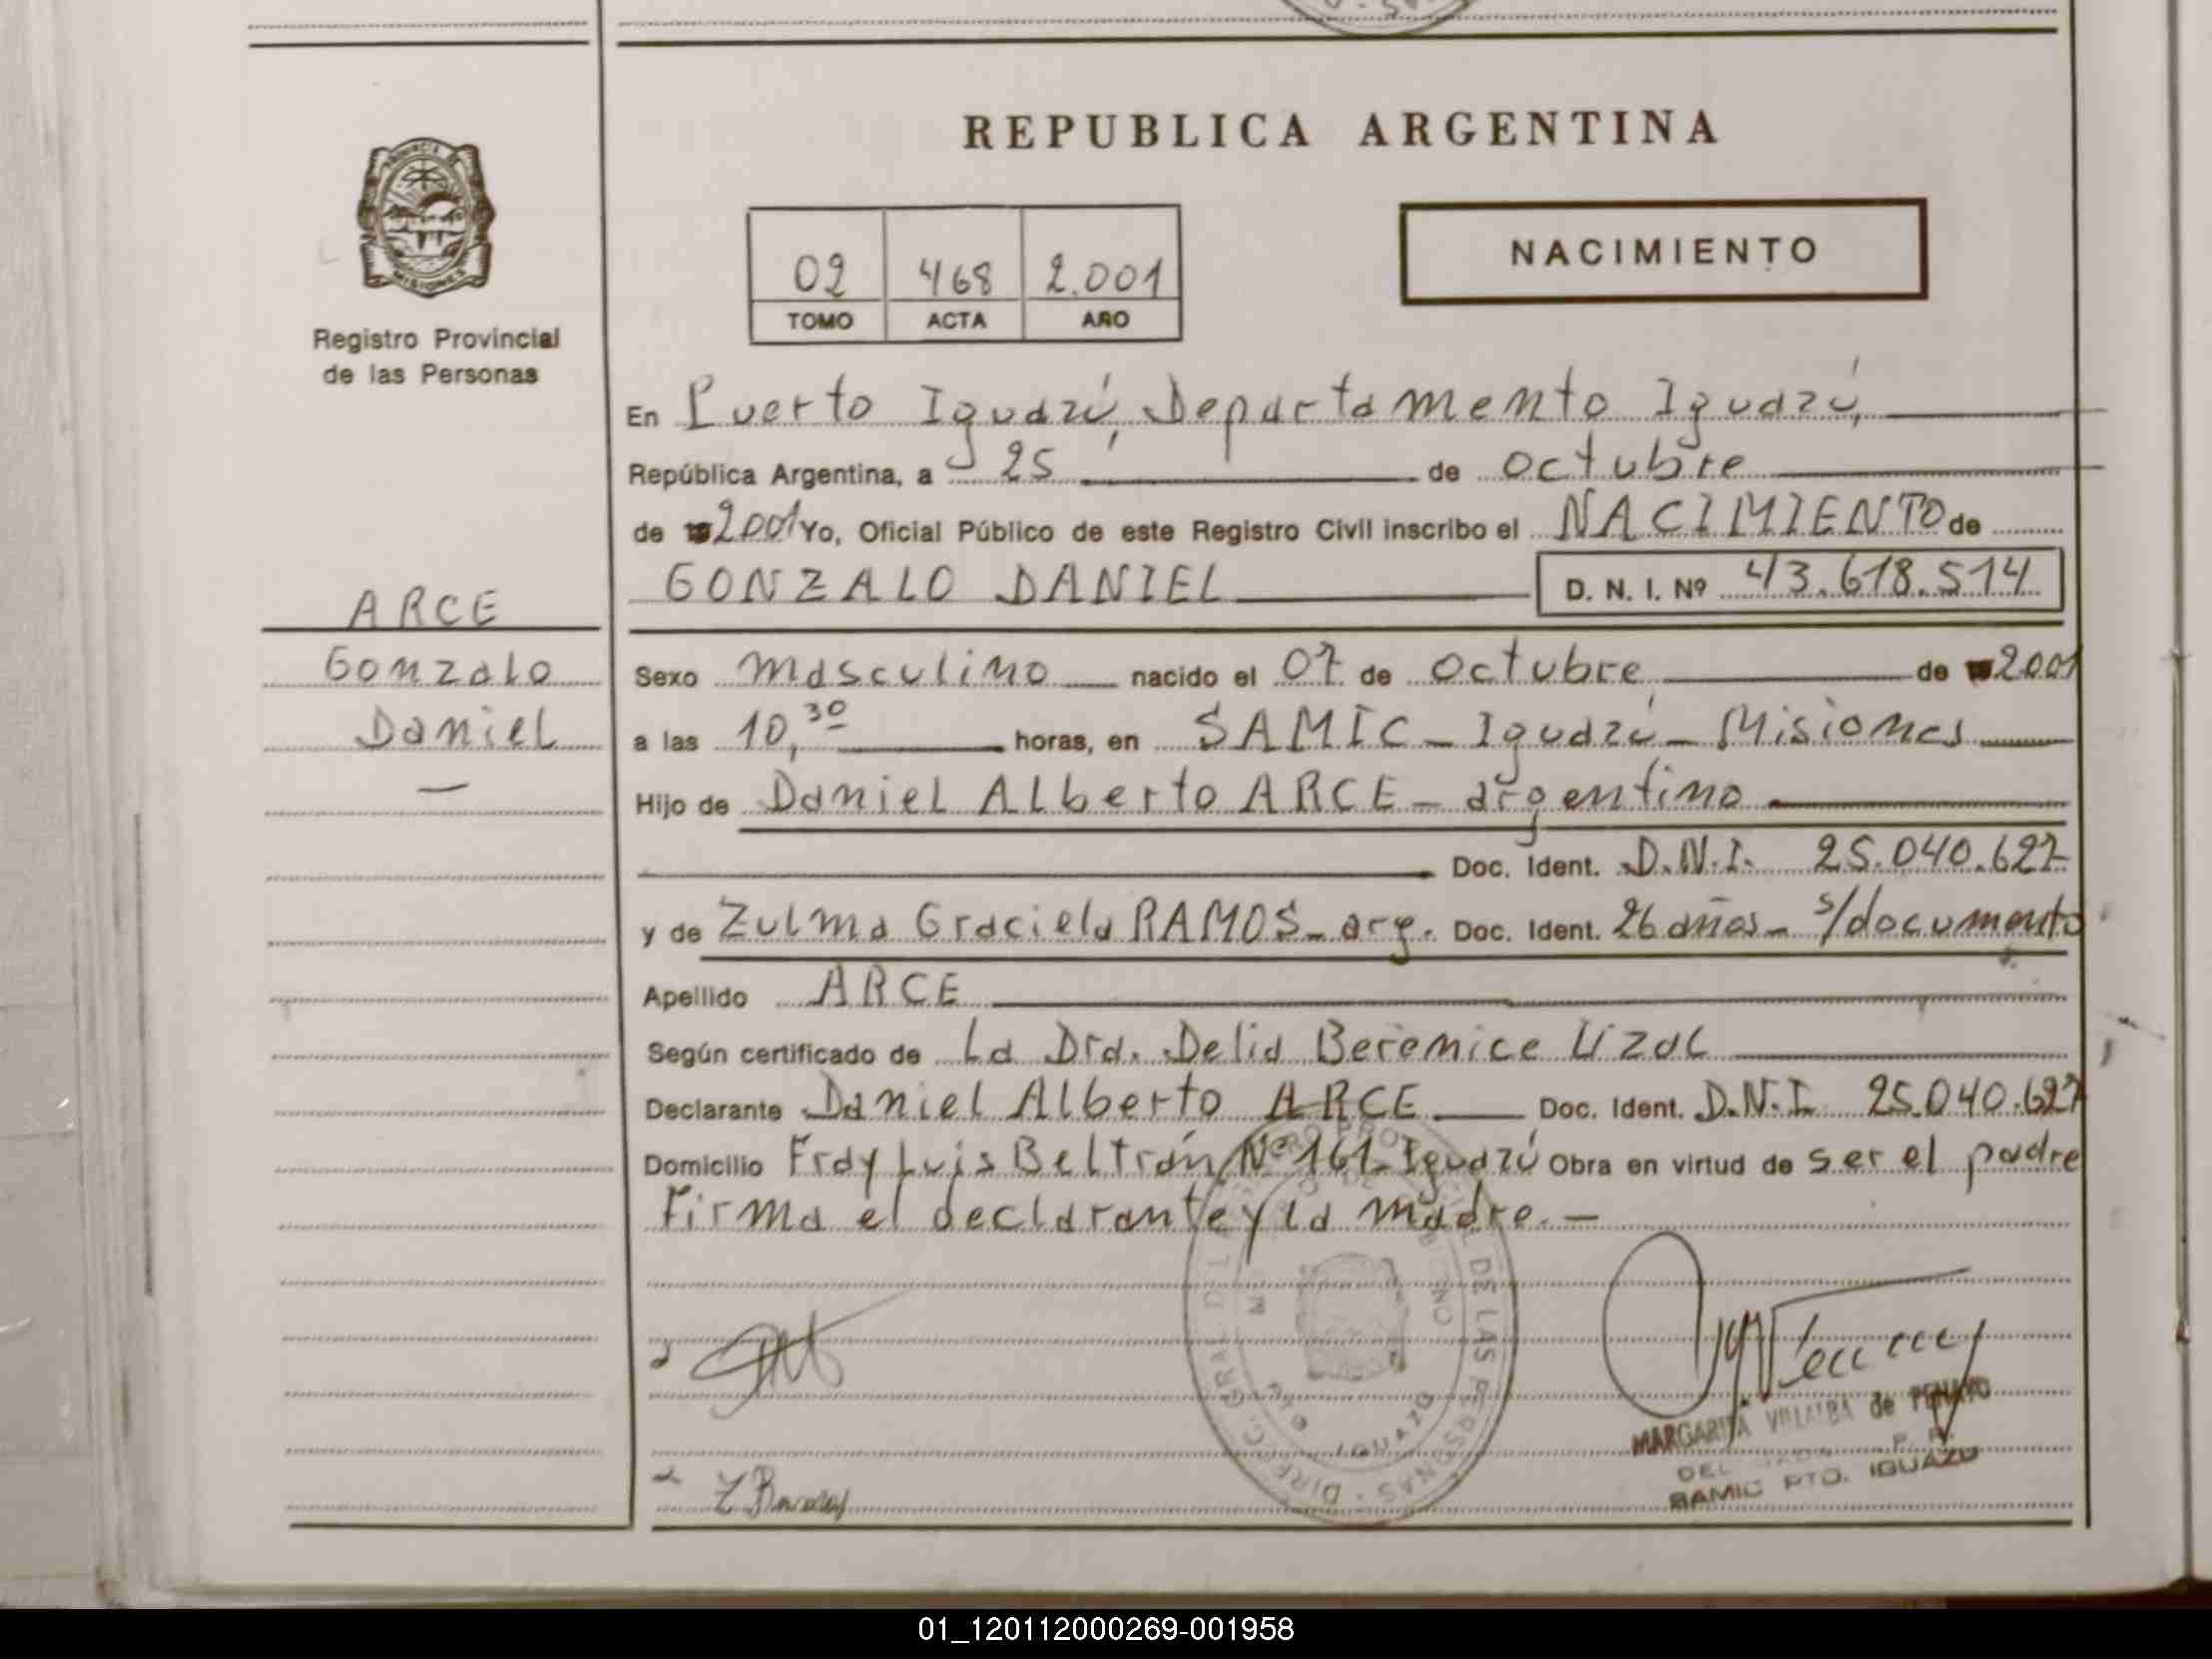 REPUBLICA ARGENTINA
PROVINCIA DE
MISIONES
Registro Provincial
de las Personas
02 468 2.001
TOMO ACTA AÑO
NACIMIENTO
En Puerto Iguazú, Departamento Iguazú,
República Argentina, a 25 de octubre
de 2001 Yo, Oficial Público de este Registro Civil inscribo el NACIMIENTO de
GONZALO DANIEL D. N. I. Nº 43.618.514
ARCE
Gonzalo
Daniel
Sexo masculino nacido el 07 de octubre de 2001
a las 10,30 horas, en SAMIC - Iguazú - Misiones
Hijo de Daniel Alberto ARCE - argentino
Doc. Ident. D.N.I. 25.040.627
y de Zulma Graciela RAMOS - arg. Doc. Ident. 26 años - s/documento
Apellido ARCE
Según certificado de La Dra. Delia Berenice Lizal
Declarante Daniel Alberto ARCE Doc. Ident. D.N.I. 25.040.627
Domicilio Fray Luis Beltrán Nº 161 - Iguazú Obra en virtud de ser el padre
Firma el declarante y la madre. -
Z Ramos
DE LAS PERSONAS
IGUAZU
MARGARITA VILLALBA de PENAYO
SAMIC PTO. IGUAZU
01_120112000269-001958